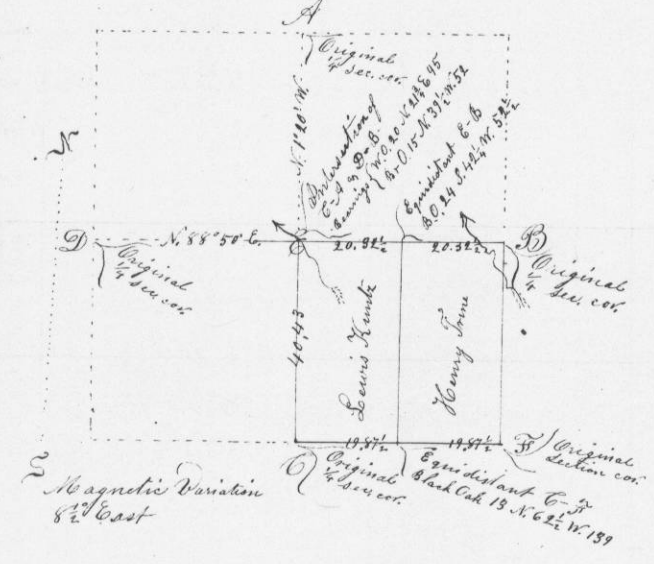 A
Original
1/4 sec. cor.
N. 1°20' W.
Intersection of
E-A & D-B.
Bearings { W.O. 20 N 21 3/4 E 95
Br O. 15 N 39 1/2 W. 52
Equidistant E-B
B O. 24 S. 42 1/4 W. 52 1/2
N
D
N. 88° 50' E.
E
20.32 1/2
20.32 1/2
B
Original
1/4 sec. cor.
Original
1/4 sec. cor.
40,43
Lewis Kuntz
Henry Trine
19.87 1/2
19.87 1/2
C
Original
1/4 sec. cor.
Equidistant C-F
Black Oak 13 N. 62 1/2 W. 139
F
Original
Section cor.
S
Magnetic Variation
8 1/2° East